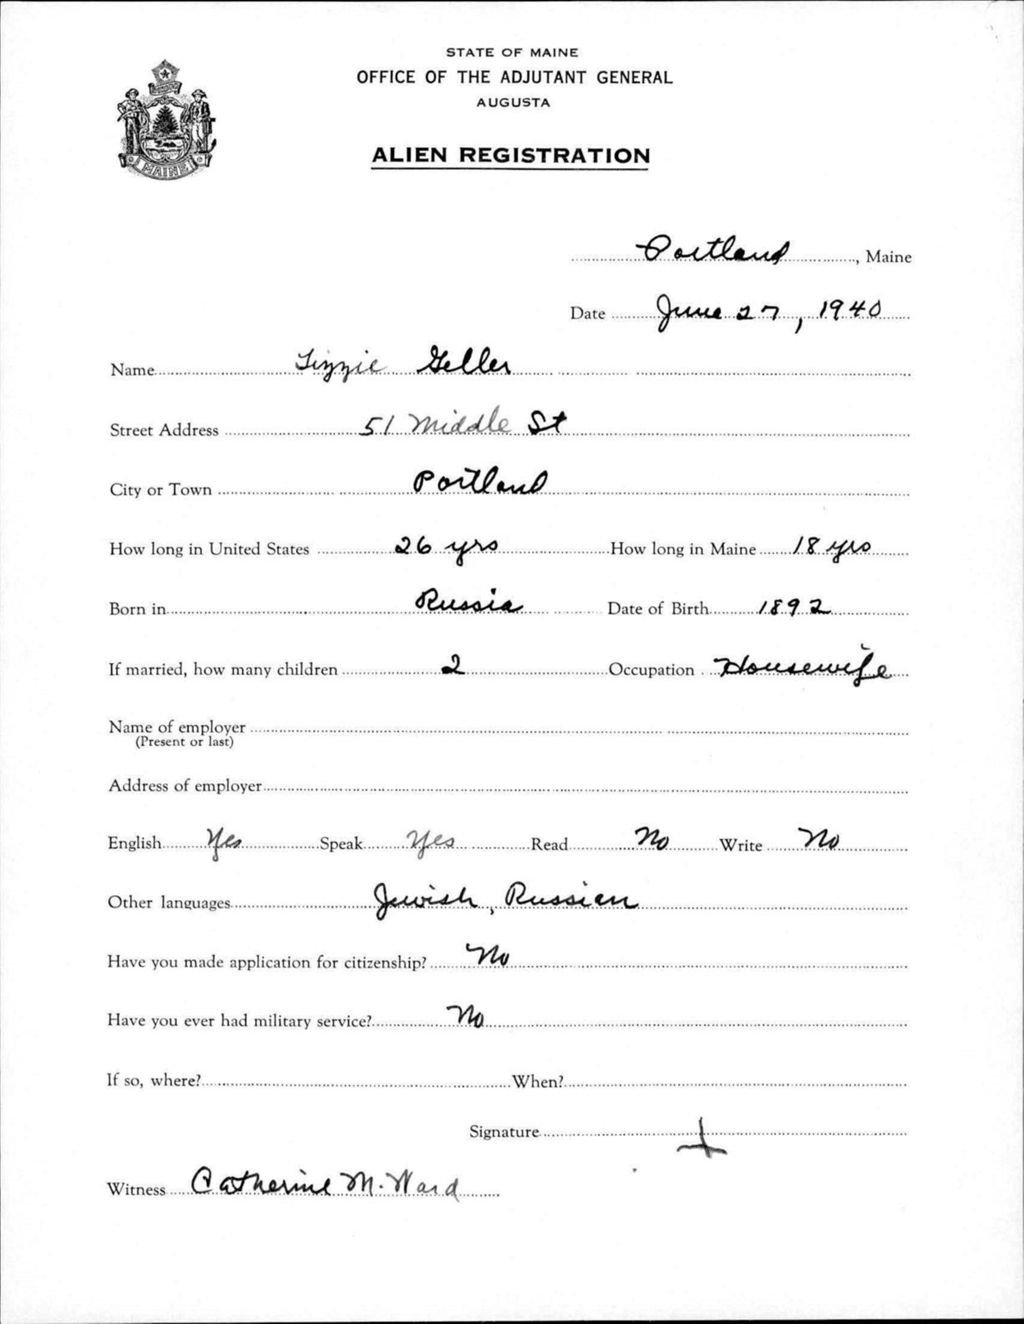 STATE OF MAINE
OFFICE OF THE ADJUTANT GENERAL
AUGUSTA
MAINE
ALIEN REGISTRATION
Portland, Maine
Date June 27, 1940
Name Lizzie Geller
Street Address 51 Middle St
City or Town Portland
How long in United States 26 yrs How long in Maine 18 yrs
Born in Russia Date of Birth 1892
If married, how many children 2 Occupation Housewife
Name of employer
(Present or last)
Address of employer
English Yes Speak Yes Read No Write No
Other languages Jewish, Russian
Have you made application for citizenship? No
Have you ever had military service? No
If so, where? When?
Signature
Witness Catherine M. Ward